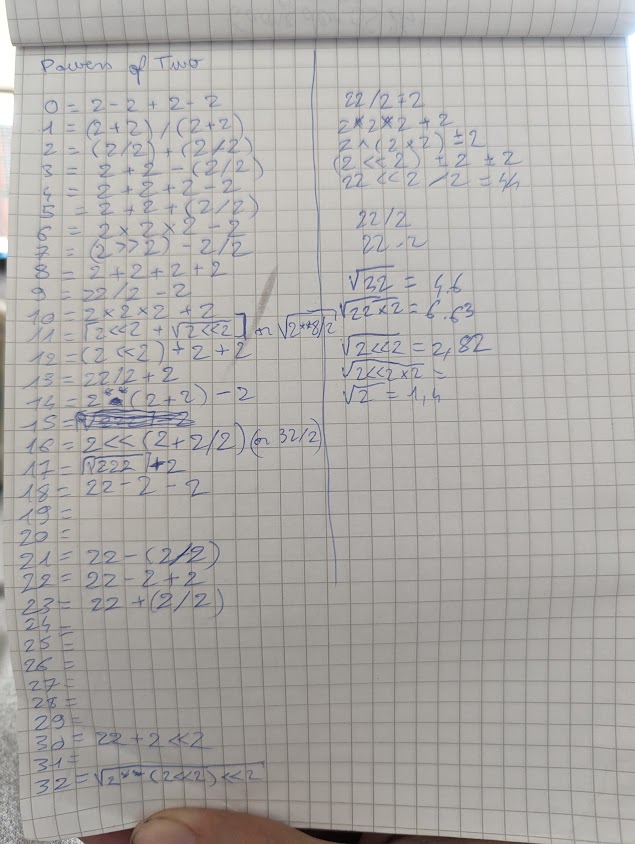 Power of Two
0 = 2 - 2 + 2 - 2
1 = (2+2) / (2+2)
2 = (2/2) + (2/2)
3 = 2 + 2 - (2/2)
4 = 2 + 2 + 2 - 2
5 = 2 + 2 + (2/2)
6 = 2 × 2 × 2 - 2
7 = (2>>2) - 2/2
8 = 2 + 2 + 2 + 2
9 = 22/2 - 2
10 = 2 × 2 × 2 + 2
11 = ⌈2<<2 + √(2<<2)⌉
12 = (2<<2) + 2 + 2
13 = 22/2 + 2
14 = 2**(2+2) - 2
15 =
16 = 2<<(2+2/2) (or 32/2)
17 = ⌈√222⌉+2
18 = 22 - 2 - 2
19 =
20 =
21 = 22 - (2/2)
22 = 22 - 2 + 2
23 = 22 + (2/2)
24 =
25 =
26 =
27 =
28 =
29 =
30 = 22 + 2<<2
31 =
32 = √(2**(2<<2)<<2)
22/2+2
2×2×2 + 2
2×(2×2) ± 2
(2<<2) ± 2 ± 2
22<<2/2 = 44
22/2
22 - 2
√22 = 4.6
√(22×2) = 6.63
√(2<<2) = 2,82
√(2<<2×2) =
√2 = 1,4